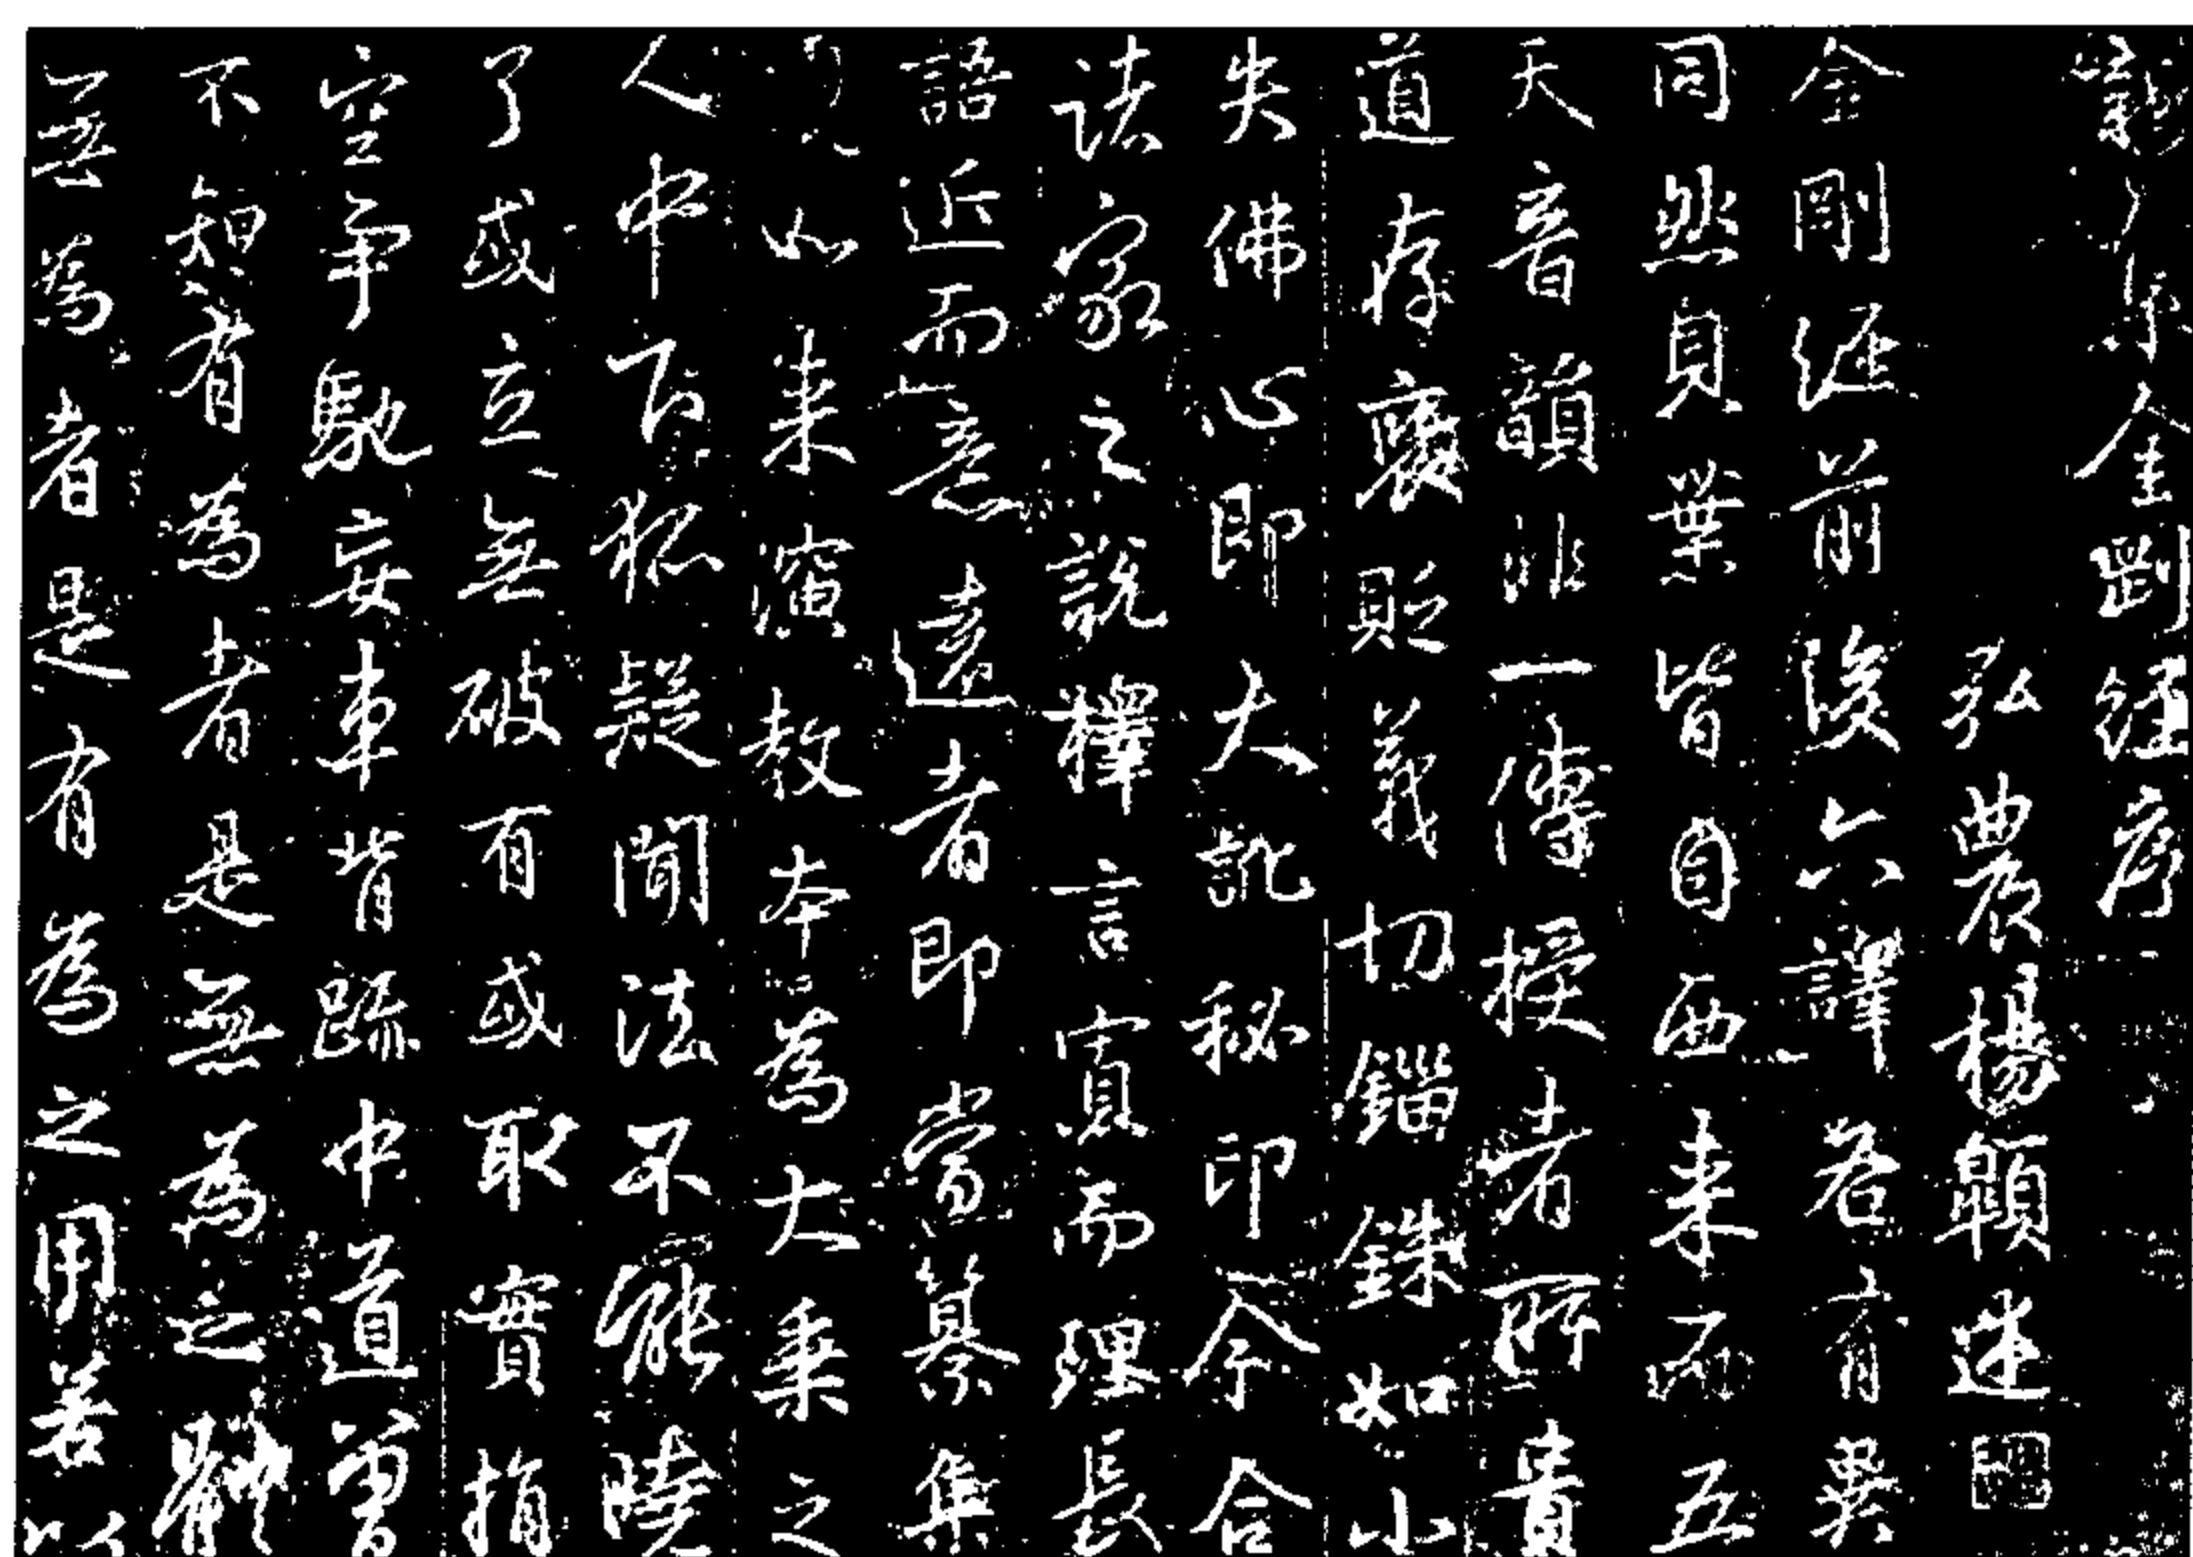 新集金剛經序
弘農楊顗述
金剛經前後六譯各有異
同然貝葉皆自西來而五
天音韻非一傳授者所貴
道存褒貶義切錙銖如小
失佛心即大訛秘印今合
諸家之說釋言寡而理長
語近而意遠者即當纂集
如來演教本為大乘之
人中下狐疑聞法不能曉
了或立無破有或取實捐
空爭馳妄車背踈中道曾
不知有為者是無為之體
無為者是有為之用若以